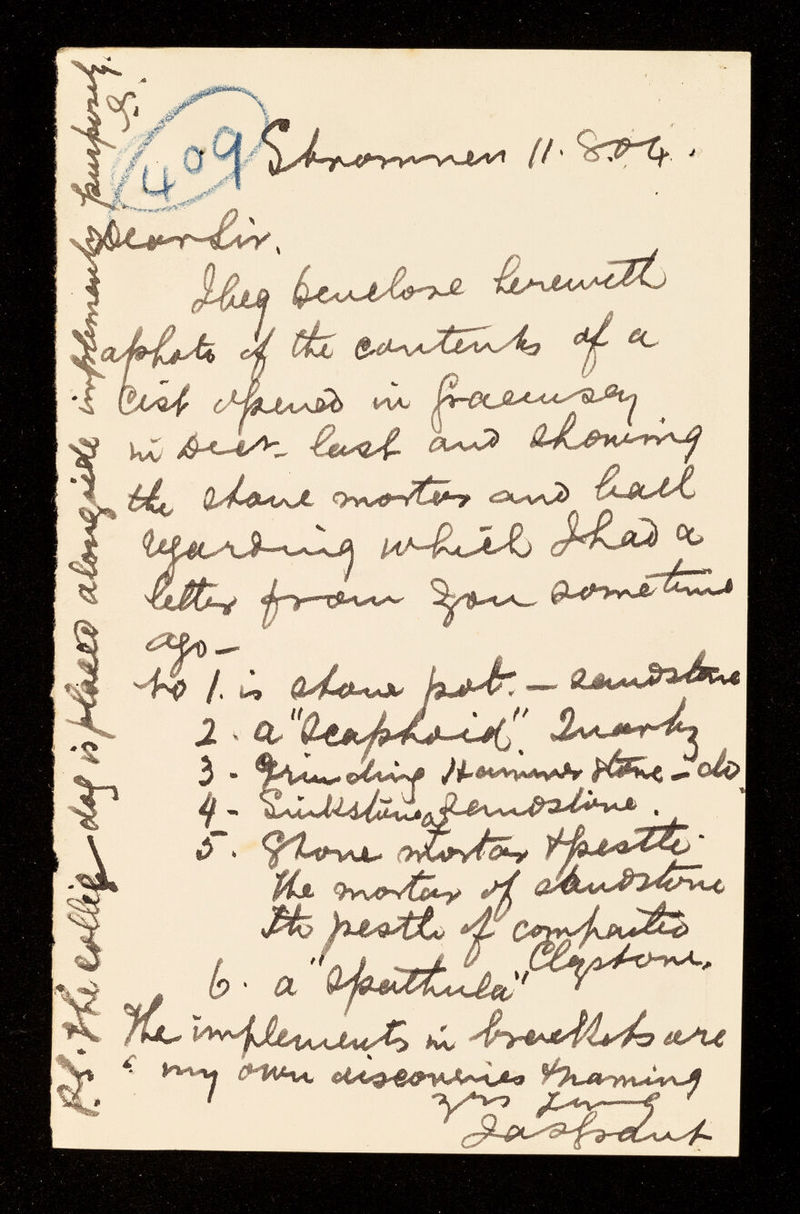 409
Stromnen 11.8.04.
Dear Sir,
I beg to enclose herewith
a photo of the contents of a
Cist opened in Graemsay
in Decr. last and showing
the stone mortar and ball
regarding which I had a
letter from you sometime
ago —
No 1. is stone pot. — sandstone
2. a "Scaphoid" Quartz
3 - Grinding Hammer stone - do.
4 - Sinkstone of Sandstone.
5. Stone mortar & pestle.
The mortar of sandstone
The pestle of compacted
Claystone.
6. a "Spathula"
The implements in brackets are
my own discoveries & naming
yrs truly
Jas Grant
P.S. The collie dog is placed alongside implements purposely.
G.